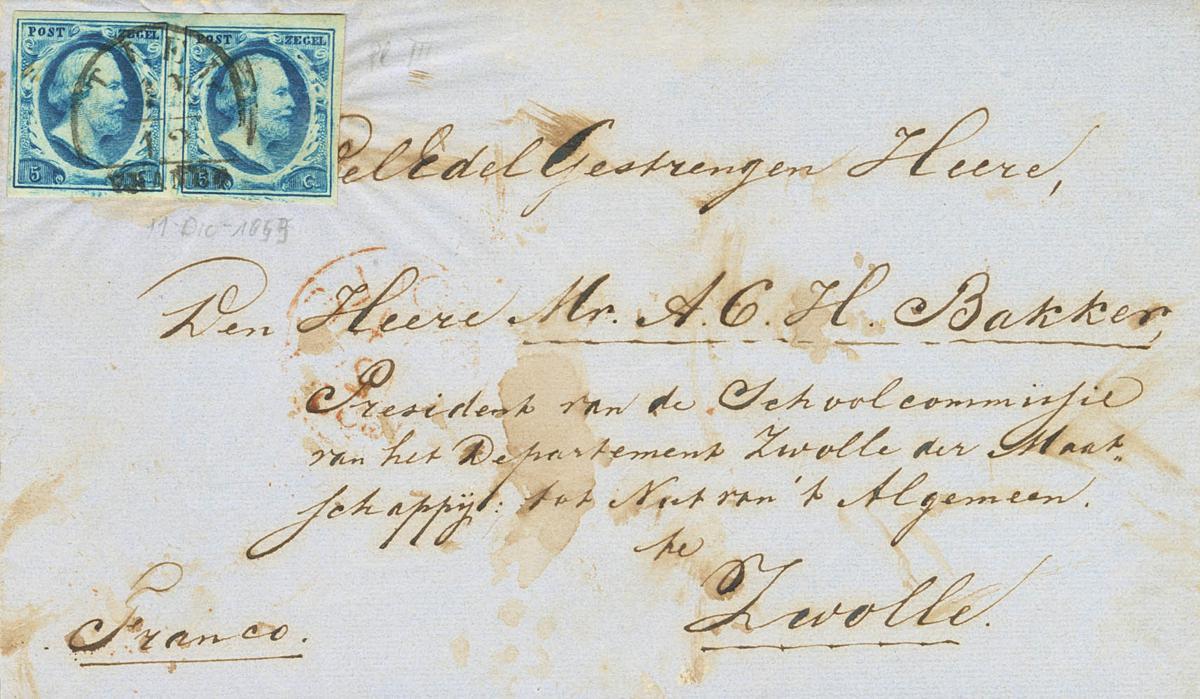 POST ZEGEL POST ZEGEL
TIEL
12
FRANCO
5 5 C.
Pl III
11 Dic - 1859
WelEdelGestrengen Heere,
Den Heere Mr. A. C. H. Bakker,
President van de Schoolcommissie
van het Departement Zwolle der Maat„
schappij: tot Nut van 't Algemeen.
te
Zwolle.
Franco.